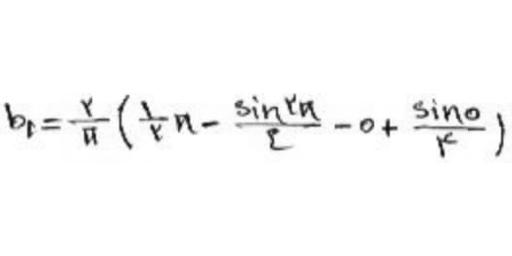 b₁ = ۲/π (۱/۲ π - sin ۲π/۴ - ۰ + sin ۰/۴)